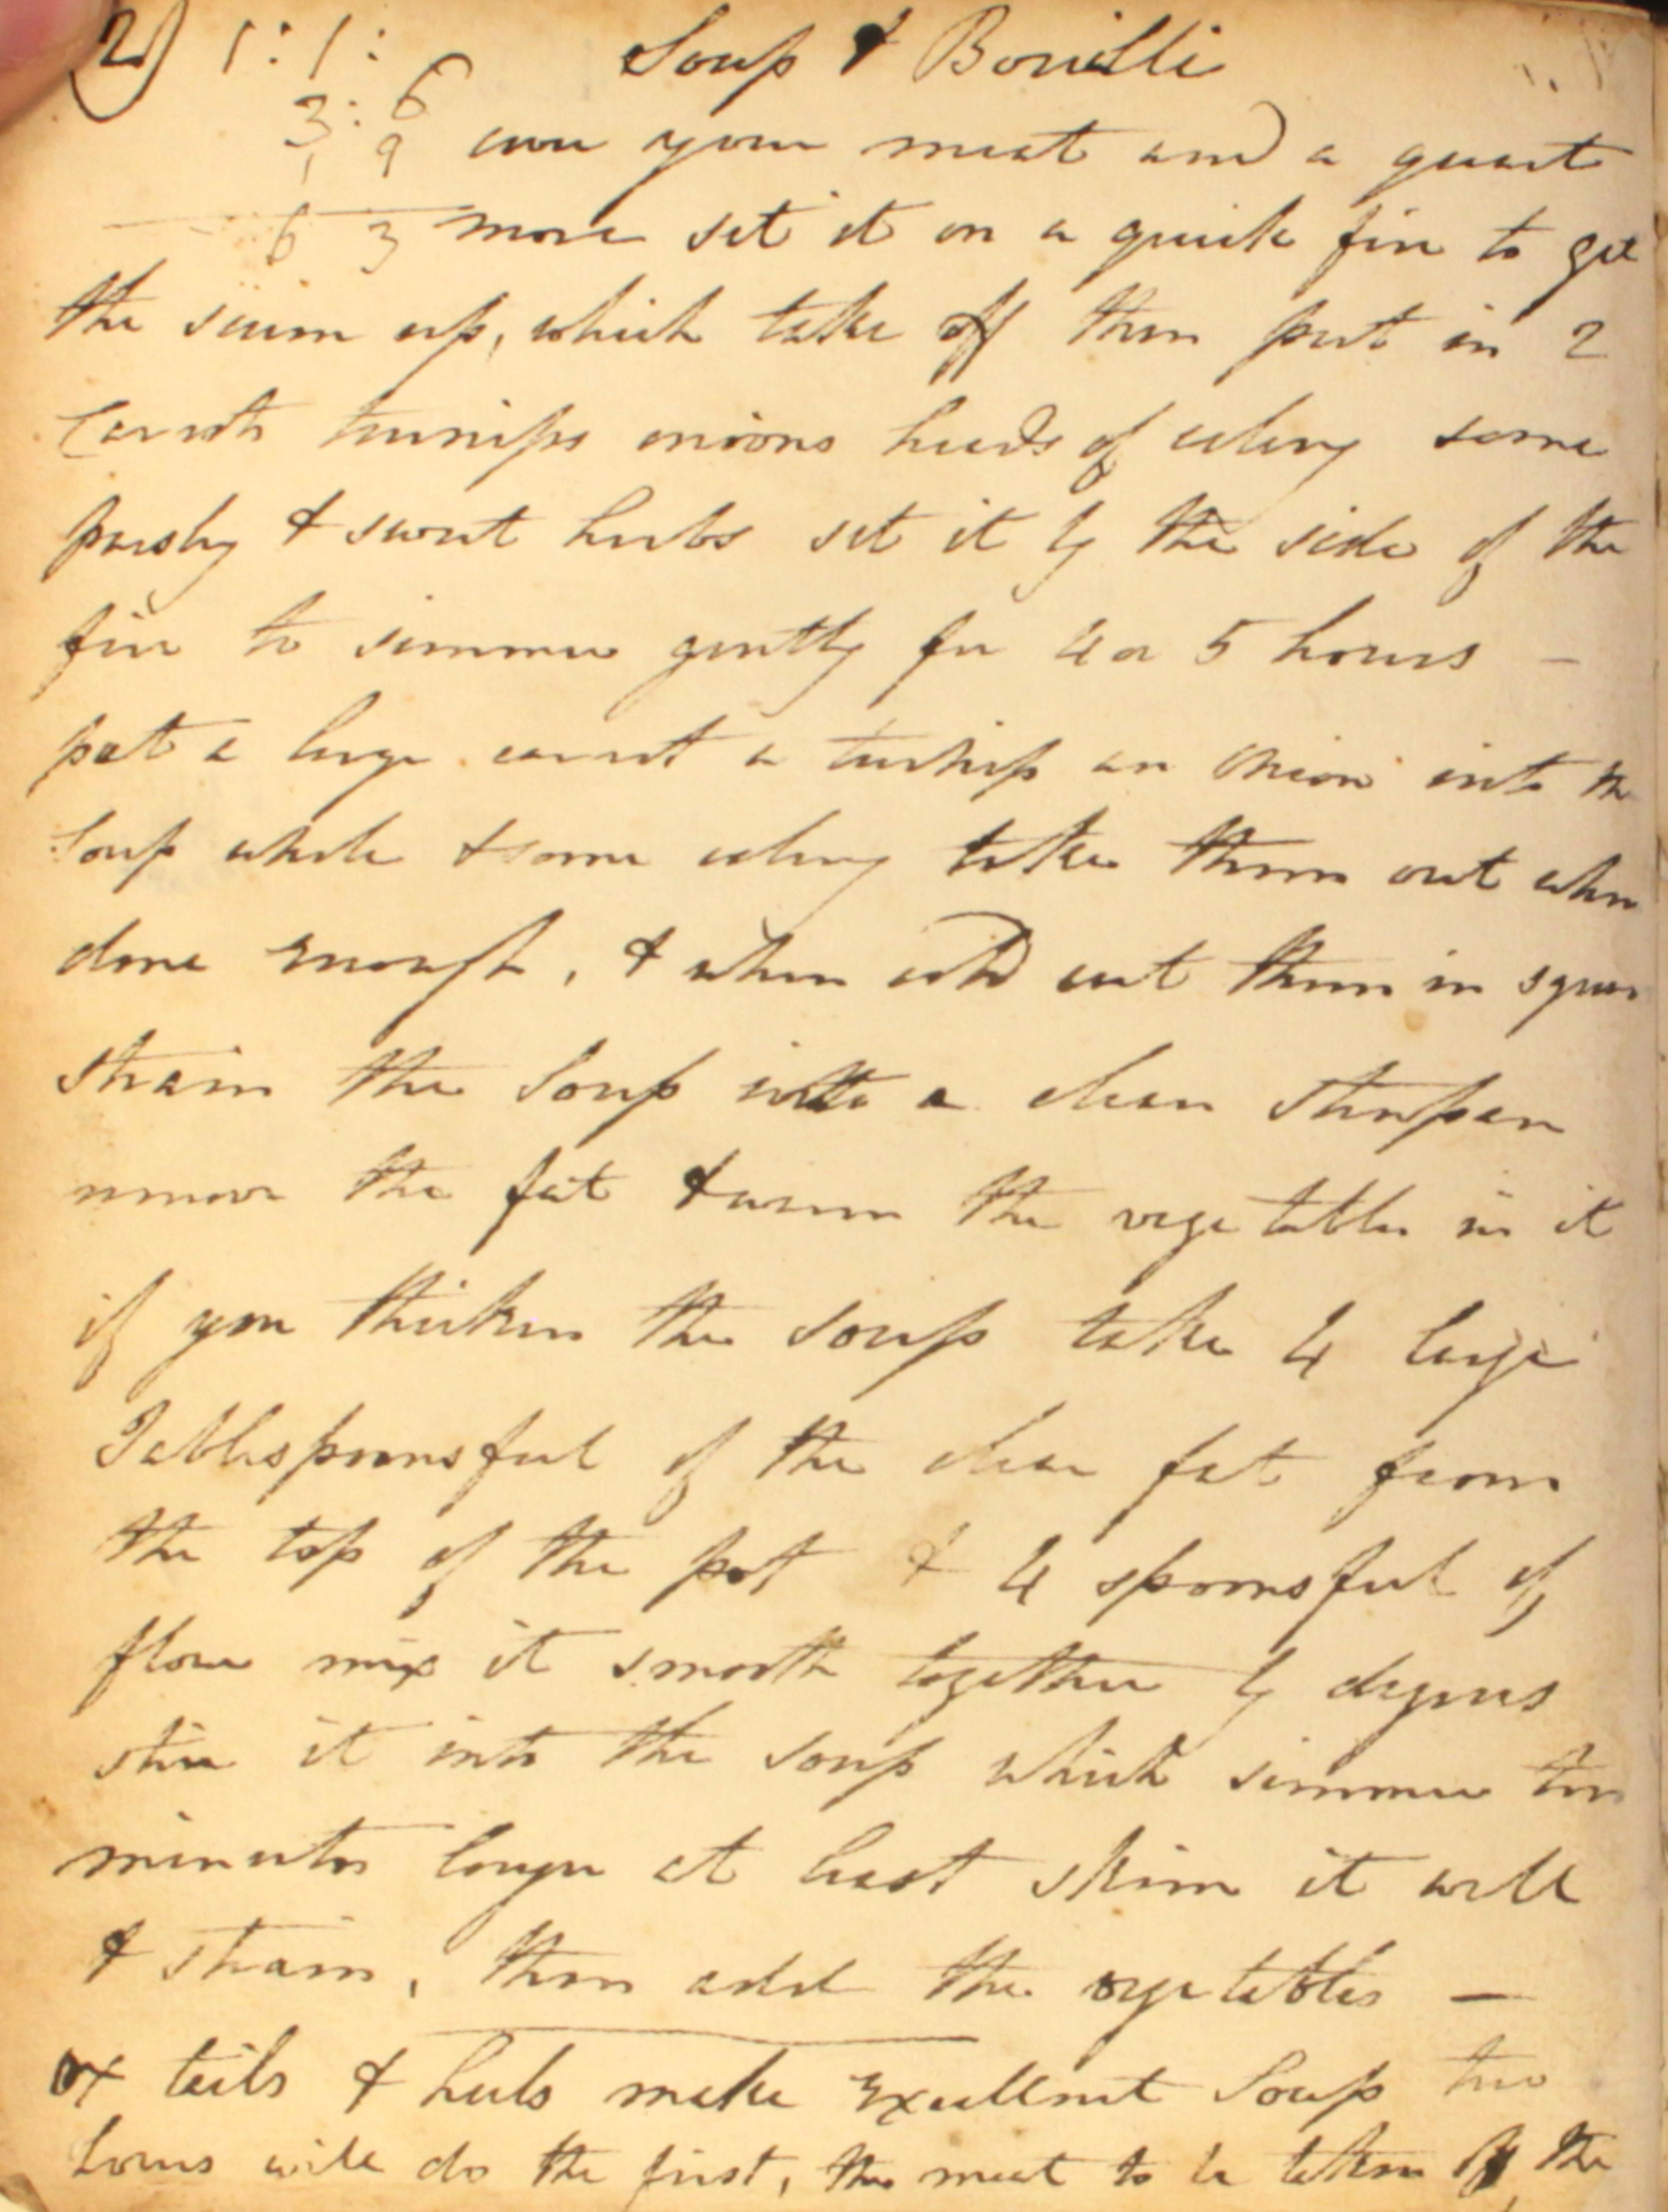 2) 1:1: Soup & Bouilli
3: 6
1 9 cover your meat and a quart
6 3 more set it on a quick fire to get
the scum up, which take off then put in 2
Carrots turnips onions heads of celery some
parsley & sweet herbs set it by the side of the
fire to simmer gently for 4 or 5 hours —
put a large carrot a turnip an Onion into the
Soup whole & some celery take them out when
done enough, & when cold cut them in squares
strain the Soup into a clean Stewpan
remove the fat & warm the vegetables in it
if you thicken the soup take 4 large
Tablespoonsful of the clear fat from
the top of the pot & 4 spoonsful of
flour mix it smooth together by degrees
stir it into the soup which simmer ten
minutes longer at least skim it well
& strain, then add the vegetables —
ox tails & heels make Excellent Soup two
hours will do the first, the meat to be taken off the